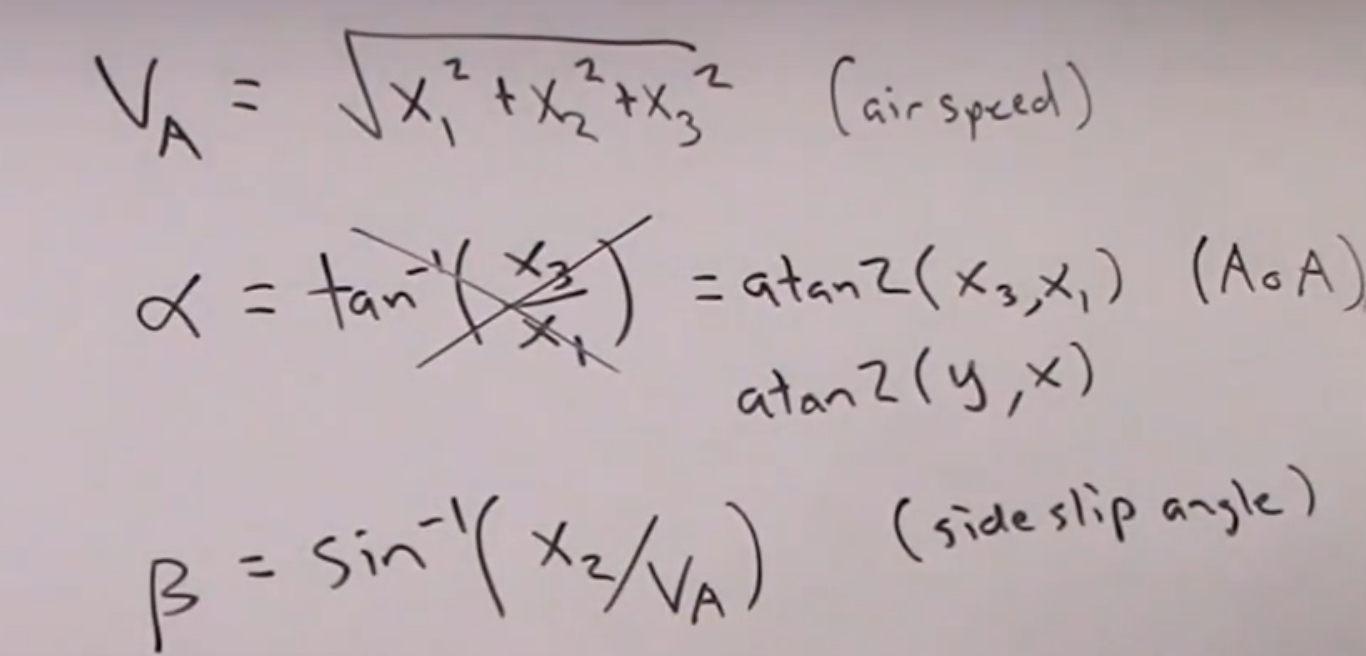 V_A = √(x₁² + x₂² + x₃²) (airspeed)
α = tan⁻¹(x₃/x₁) = atan2(x₃,x₁) (AoA)
atan2(y,x)
β = sin⁻¹(x₂/V_A) (sideslip angle)